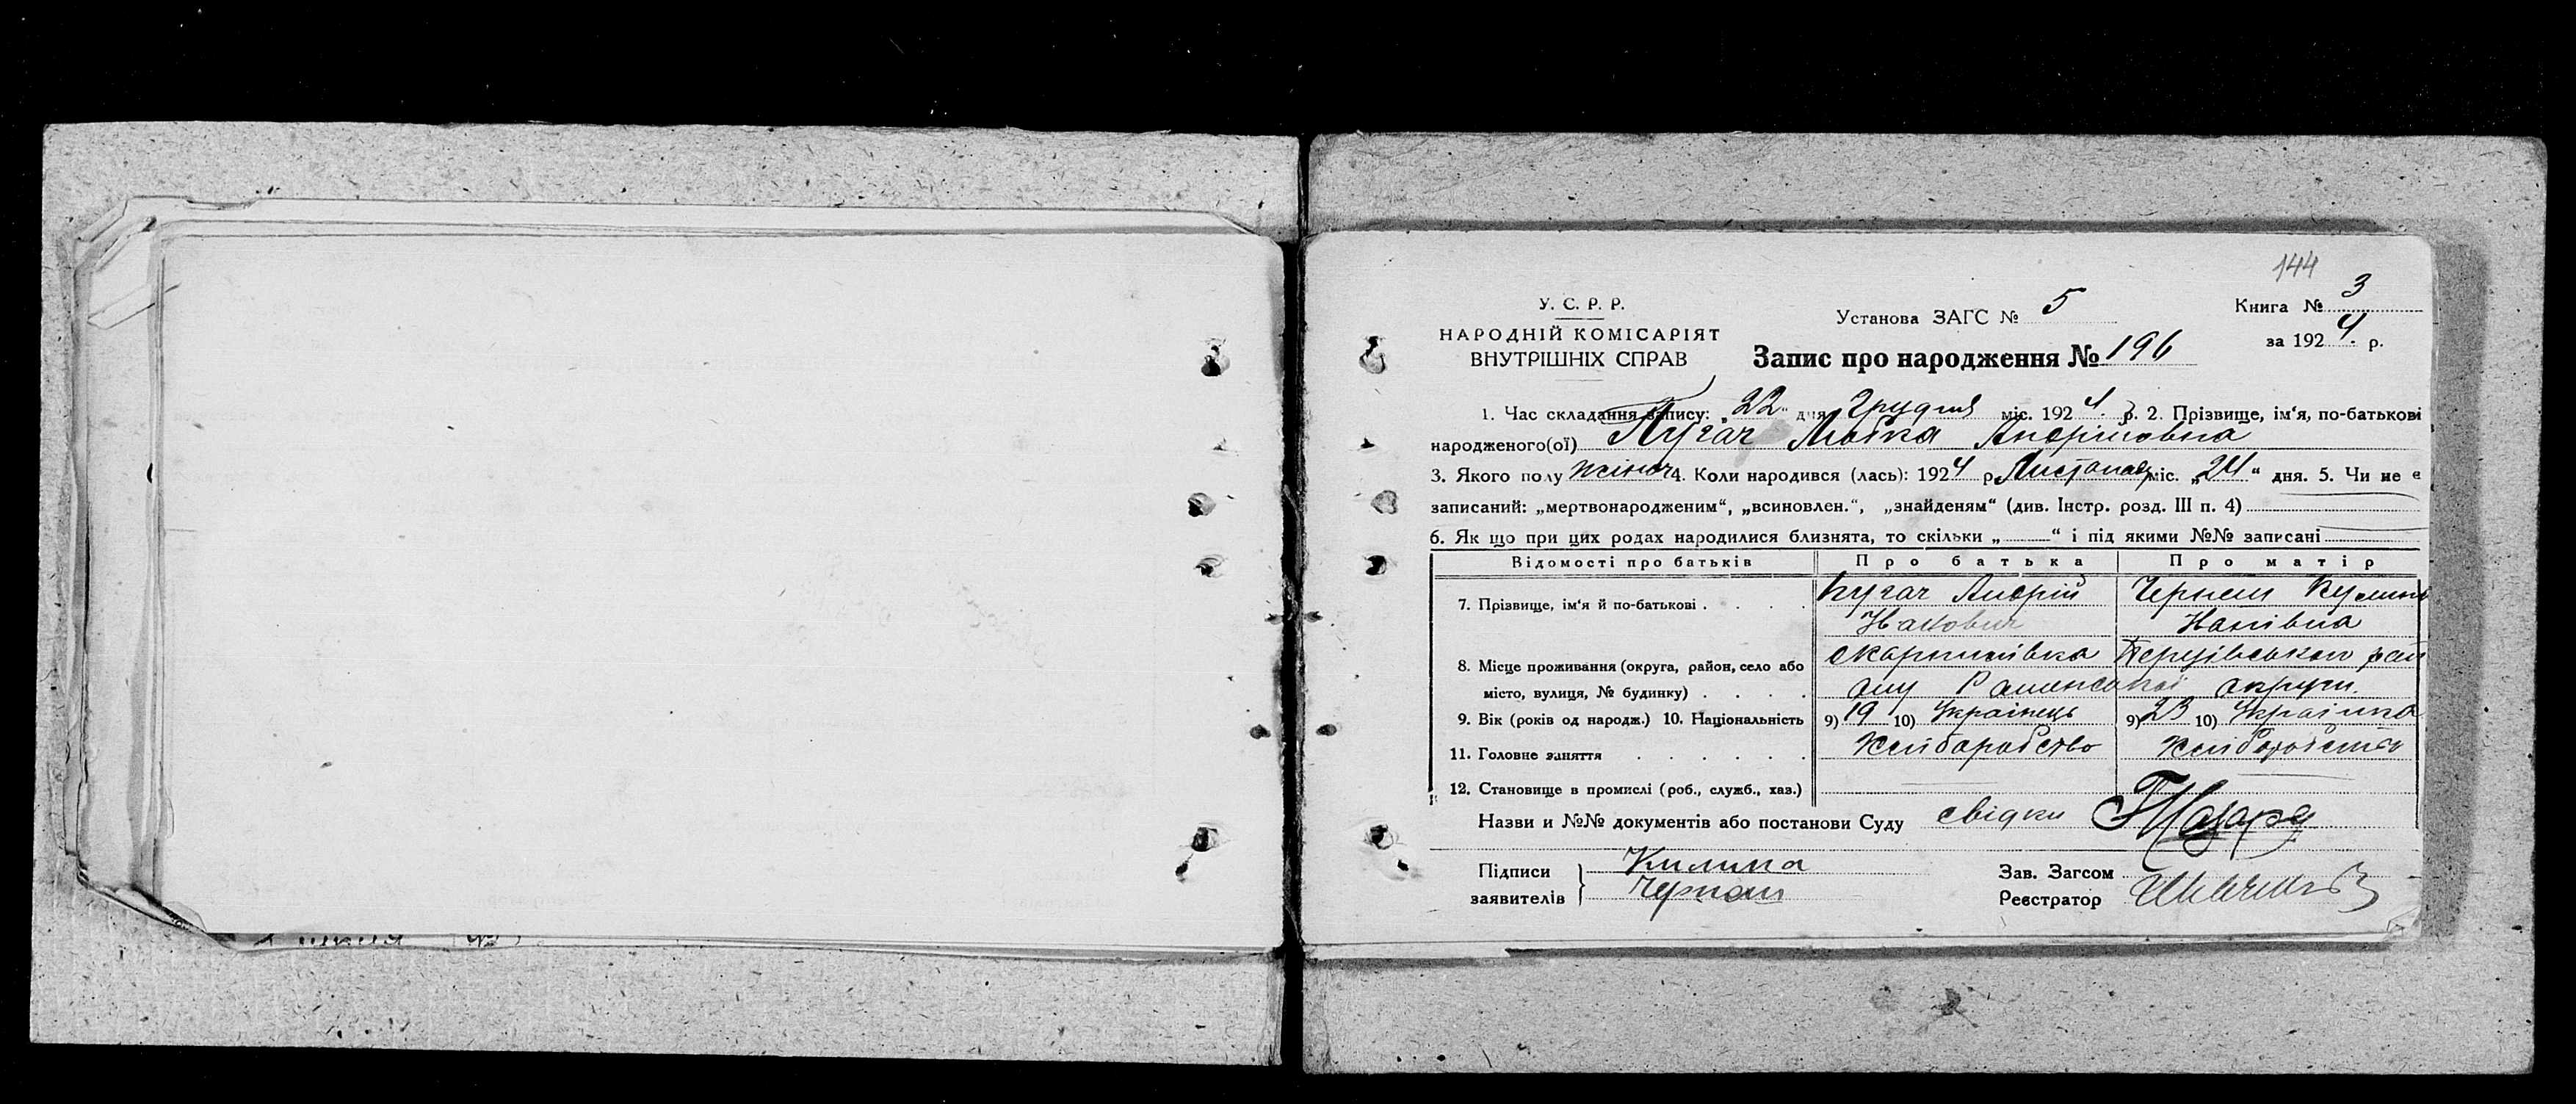 144
У. С. Р. Р.
НАРОДНІЙ КОМІСАРІЯТ
ВНУТРІШНІХ СПРАВ
Установа ЗАГС № 5
Запис про народження № 196
Книга № 3
за 1924 р.
1. Час складання запису: „22“ дня Грудня міс. 1924 р. 2. Прізвище, ім‘я, по-батькові
народженого(ої) Пугач Андріївна
3. Якого полу жіноч 4. Коли народився (лась): 1924 р. Листопад міс. „24“ дня. 5. Чи не є
записаний: „мертвонародженим“, „всиновлен.“, „знайденям“ (див. Інстр. розд. III п. 4)
6. Як що при цих родах народилися близнята, то скільки „ “ і під якими №№ записані
Відомості про батьків Про батька Про матір
7. Прізвище, ім‘я й по-батькові . . . . Пугач Андрій Черпаш
8. Місце проживання (округа, район, село або
місто, вулиця, № будинку) . . . . Роменської округи.
9. Вік (років од народж.) 10. Національність 9) 19 10) Українець 9) 23 10) Українка
11. Головне заняття . . . . . . Хліборобство Хліборобство
12. Становище в промислі (роб., служб., хаз.)
Назви и №№ документів або постанови Суду свідки
Підписи
заявителів
Килина
Зав. Загсом
Реєстратор